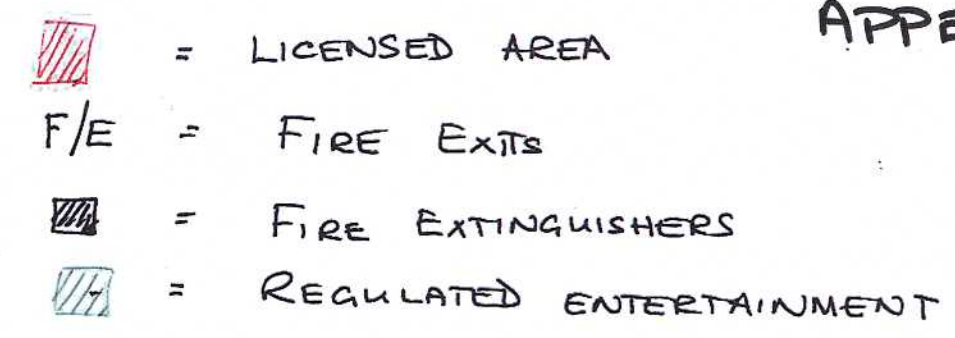 APPE
= LICENSED AREA
F/E = FIRE EXITS
= FIRE EXTINGUISHERS
= REGULATED ENTERTAINMENT